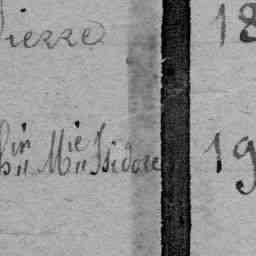 Pierre 18
in Mie Isidore 19